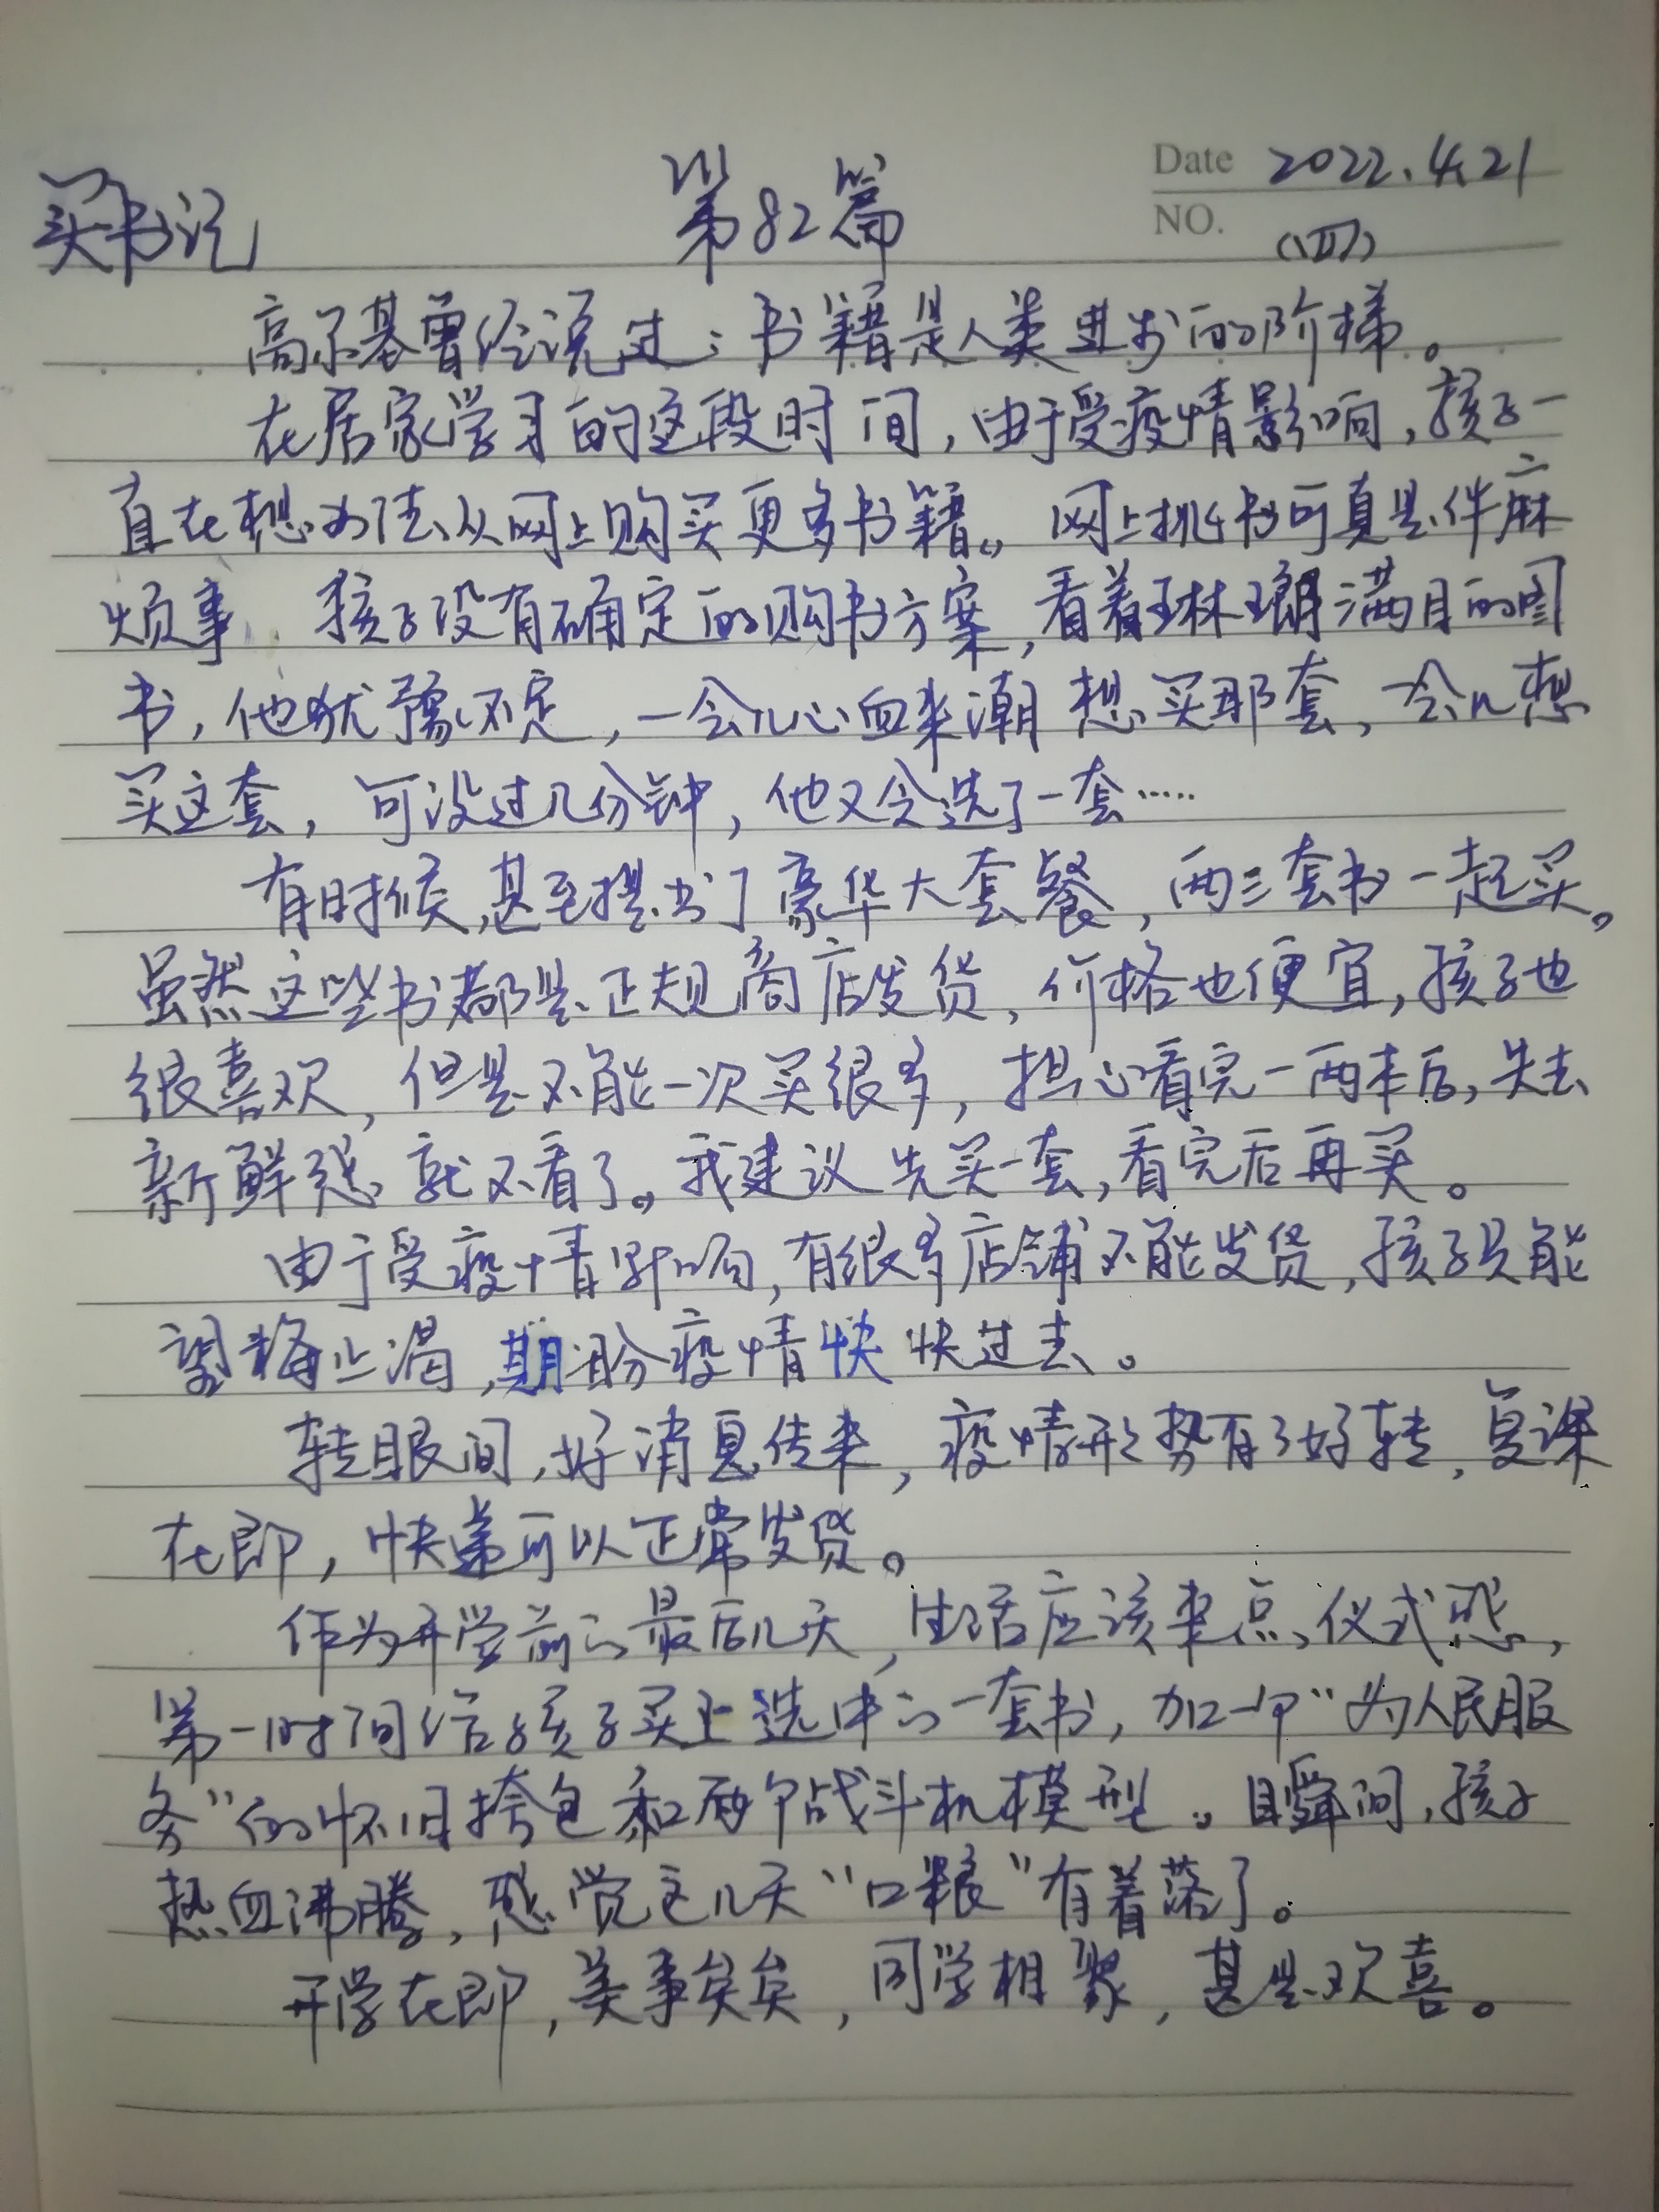 Date 2022.4.21
买书记 第82篇 NO. (四)
高尔基曾经说过：书籍是人类进步的阶梯。
在居家学习的这段时间，由于受疫情影响，孩子一
直在想办法从网上购买更多书籍。网上挑书可真是件麻
烦事，孩子没有确定的购书方案，看着琳琅满目的图
书，他犹豫不定，一会儿心血来潮想买那套，一会儿想
买这套，可没过几分钟，他又会选了一套……
有时候，甚至提出了豪华大套餐，两三套书一起买。
虽然这些书都是正规商店发货，价格也便宜，孩子也
很喜欢，但是不能一次买很多，担心看完一两本后，失去
新鲜感，就不看了。我建议先买一套，看完后再买。
由于受疫情影响，有很多店铺不能发货，孩子只能
望梅止渴，期盼疫情快快过去。
转眼间，好消息传来，疫情形势有了好转，复课
在即，快递可以正常发货。
作为开学前的最后几天，生活应该来点仪式感，
第一时间给孩子买上选中的一套书，加一个“为人民服
务”的怀旧挎包和两个战斗机模型。一瞬间，孩子
热血沸腾，感觉这几天“口粮”有着落了。
开学在即，美事矣矣，同学相聚，甚是欢喜。